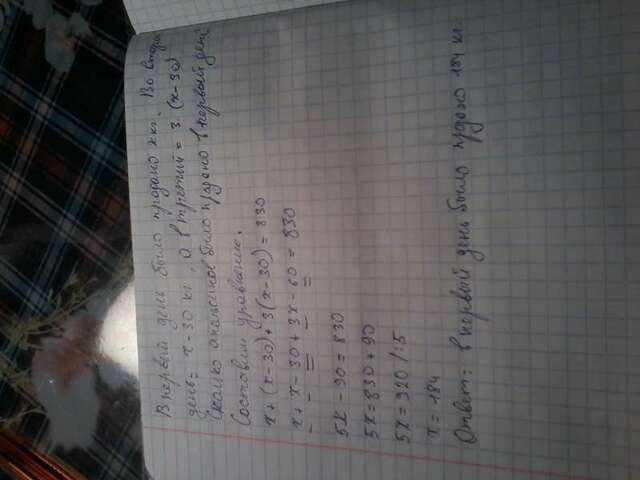 В первый день было продано x кг. Во второй
день = x-30 кг, а в третий = 3·(x-30)
Сколько апельсинов было продано в первый день
Составим уравнение.
x+(x-30)+3(x-30)=830
x+x-30+3x-60=830
5x-90=830
5x=830+90
5x=920 /:5
x=184
Ответ: в первый день было продано 184 кг.